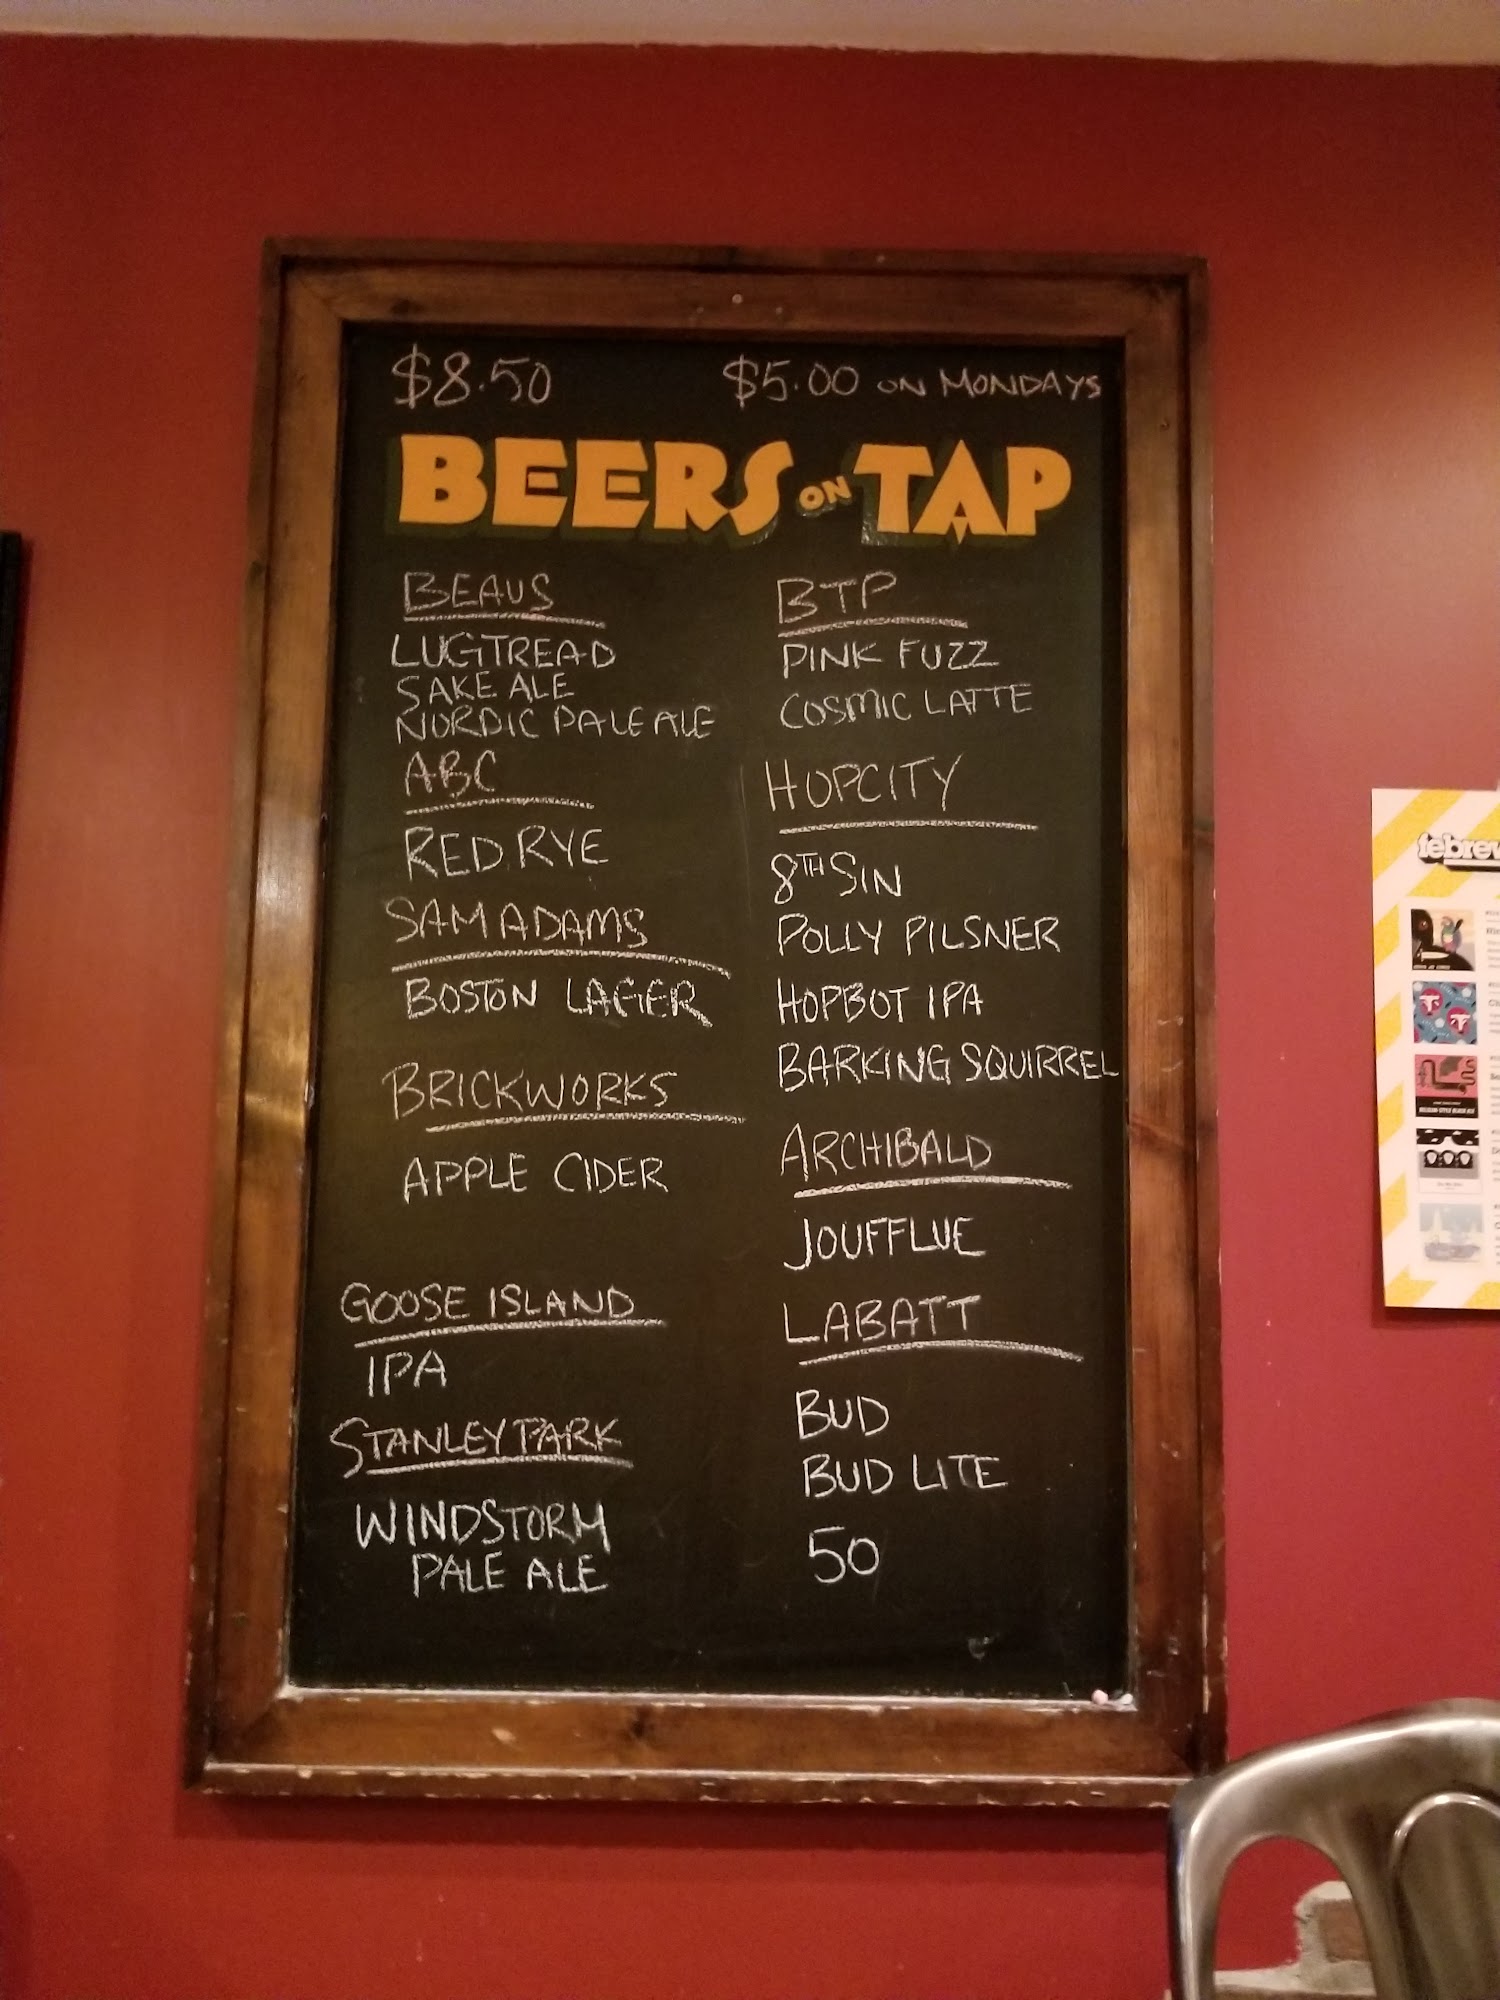 $8.50 $5.00 ON MONDAYS
BEERS ON TAP
BEAUS
LUGTREAD
SAKE ALE
NORDIC PALE ALE
ABC
RED RYE
SAM ADAMS
BOSTON LAGER
BRICKWORKS
APPLE CIDER
GOOSE ISLAND
IPA
STANLEY PARK
WINDSTORM
PALE ALE
BTP
PINK FUZZ
COSMIC LATTE
HOPCITY
8TH SIN
POLLY PILSNER
HOPBOT IPA
BARKING SQUIRREL
ARCHIBALD
JOUFFLUE
LABATT
BUD
BUD LITE
50